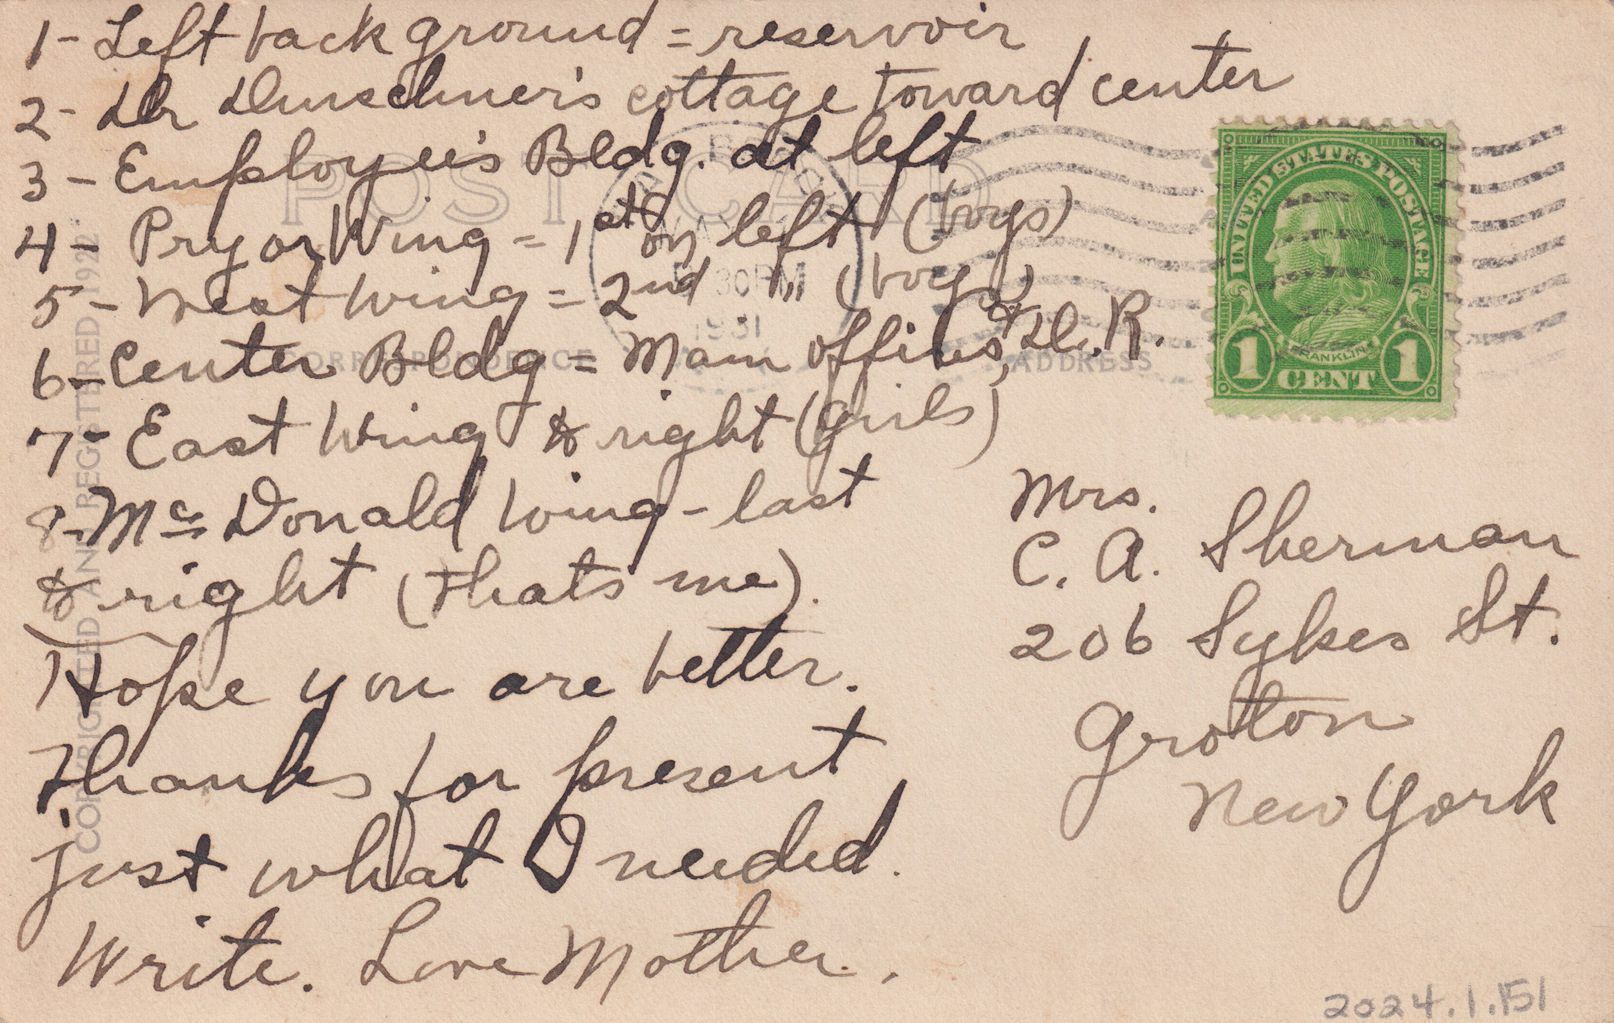 1- Left back ground = reservoir
2- Dr Durschner's cottage toward center
3 - Employee's Bldg. at left
4 - Pryor Wing = 1st on left (boys)
5 - West Wing = 2nd " " (boys)
6 - Center Bldg = Main offices, & D. R.
7 - East Wing to right (girls)
8 - Mc Donald Wing - last
to right (thats me).
Hope you are better.
Thanks for present
just what I needed.
Write. Love Mother.
POST CARD
CORRESPONDENCE
ADDRESS
COPYRIGHTED AND REGISTERED 1922
30 PM
1931
UNITED STATES POSTAGE
FRANKLIN
1 CENT 1
Mrs.
C. A. Sherman
206 Sykes St.
Groton
New York
2024.1.151